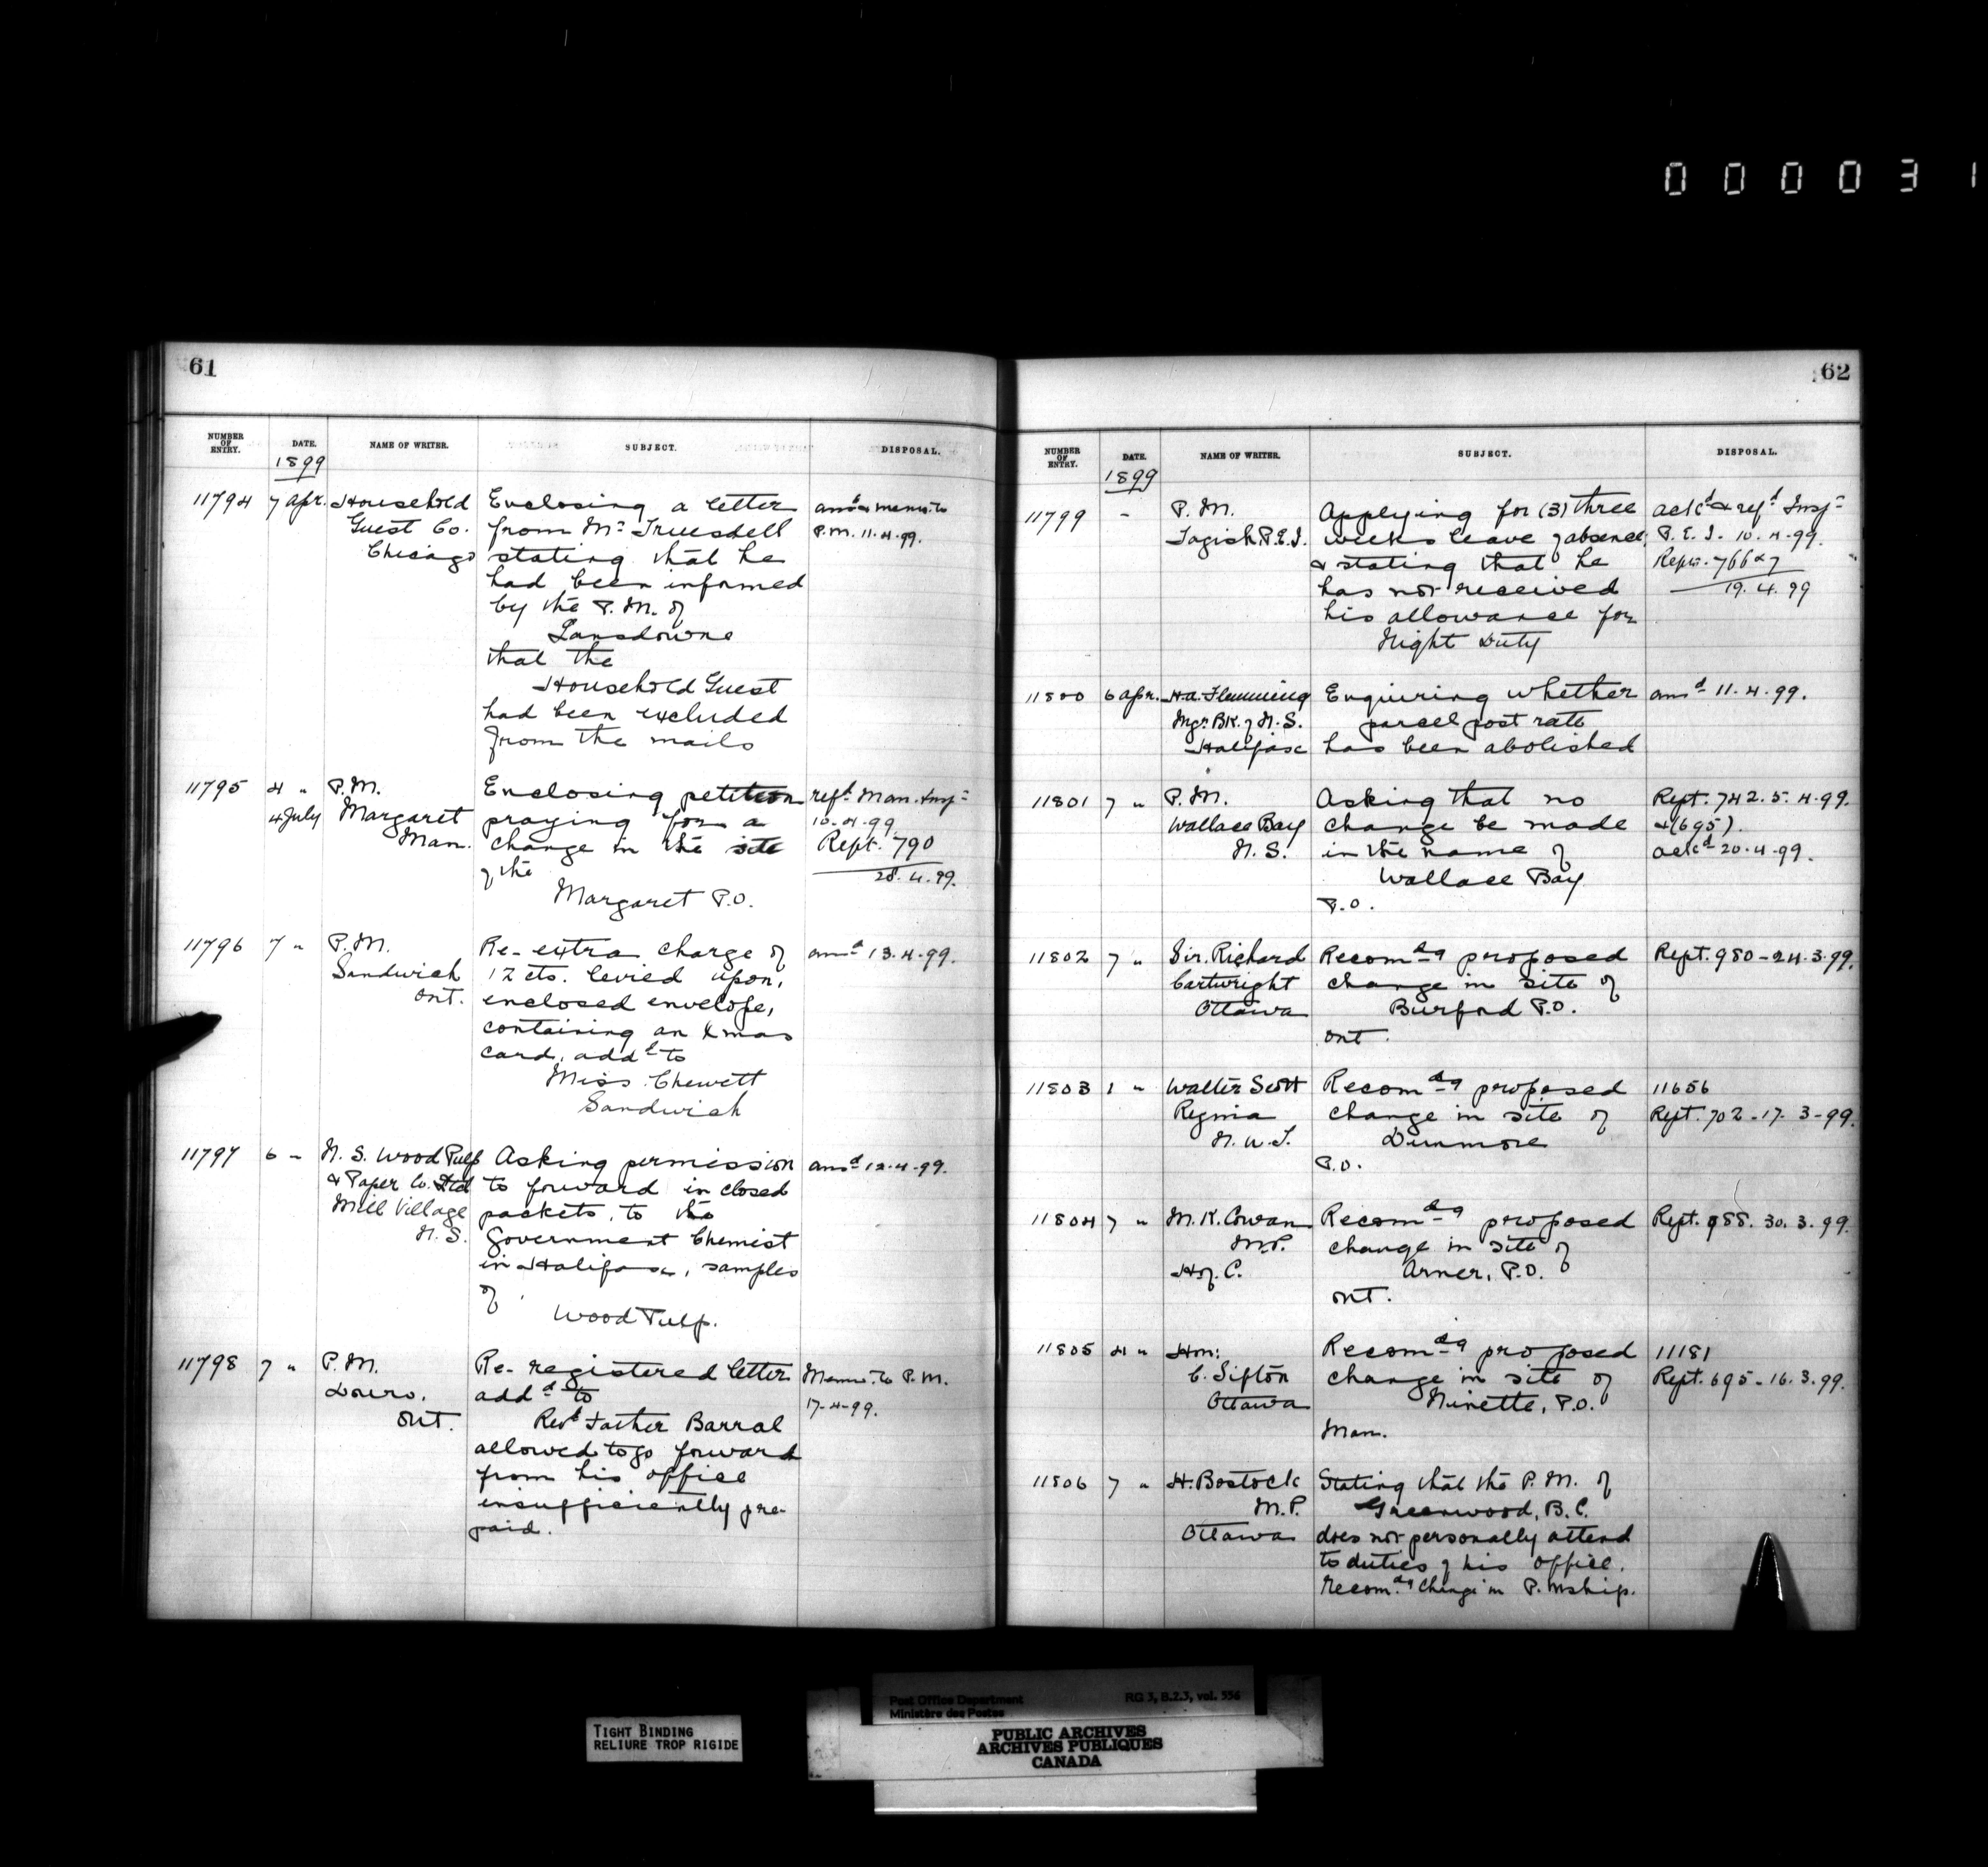 000031
61
NUMBER OF ENTRY. DATE. NAME OF WRITER. SUBJECT. DISPOSAL.
1899
11794 7 Apr. Household Enclosing a letter ansd & memo. to
Guest Co. from Mr Truesdell P.M. 11.4.99.
Chicago stating that he
had been informed
by the P.M. of
Lansdowne
that the
Household Guest
had been excluded
from the mails
11795 4 " P.M. Enclosing petition refd Man. Insp-
4 July Margaret praying for a 10-4-99.
Man. change in the site Rept. 790
of the 28.4.99.
Margaret P.O.
11796 7 " P.M. Re- extra charge of ansd 13.4.99.
Sandwich 12 cts. levied upon,
Ont. enclosed envelope,
containing an Xmas
card, addd to
Miss Chewett
Sandwich
11797 6 " N.S. Wood Pulp Asking permission ansd 12.4.99.
& Paper Co. Ltd to forward in closed
Mill Village packets, to the
N.S. Government Chemist
in Halifax, samples
of
Wood Pulp.
11798 7 " P.M. Re- registered letter Memo. to P.M.
Douro, addd to 17-4-99.
Ont. Revd Father Barral
allowed to go forward
from his office
insufficiently pre-
paid.
62
NUMBER OF ENTRY. DATE. NAME OF WRITER. SUBJECT. DISPOSAL.
1899
11799 - P.M. Applying for (3) three ackd & refd Insp-
Tagish P.E.I. weeks leave of absence, P.E.I. 10.4.99.
& stating that he Repts. 766 & 7
has not received 19.4.99
his allowance for
Night Duty
11800 6 Apr. H.A. Flemming Enquiring whether ansd 11.4.99.
Mgr. Bk. of N.S. parcel post rate
Halifax has been abolished
11801 7 " P.M. Asking that no Rept. 742.5.4.99.
Wallace Bay change be made & (695).
N.S. in the name of ackd 20.4.99.
Wallace Bay
P.O.
11802 7 " Sir. Richard Recomdg proposed Rept. 980-24.3.99.
Cartwright change in site of
Ottawa Burford P.O.
Ont.
11803 1 " Walter Scott Recomdg proposed 11656
Regina change in site of Rept. 702-17.3-99.
N.W.T. Dunmore
P.O.
11804 7 " M.K. Cowan Recomdg proposed Rept. 988. 30.3.99.
M.P. change in site of
H. of C. Arner, P.O.
Ont.
11805 4 " Hon: Recomdg proposed 11181
C. Sifton change in site of Rept. 695-16.3.99.
Ottawa Ninette, P.O.
Man.
11806 7 " H. Bostock Stating that the P.M. of
M.P. Greenwood, B.C.
Ottawa does not personally attend
to duties of his office.
recomdg change in P.Mship.
Post Office Department RG 3, B.2.3, vol. 556
Ministère des Postes
TIGHT BINDING
RELIURE TROP RIGIDE
PUBLIC ARCHIVES
ARCHIVES PUBLIQUES
CANADA